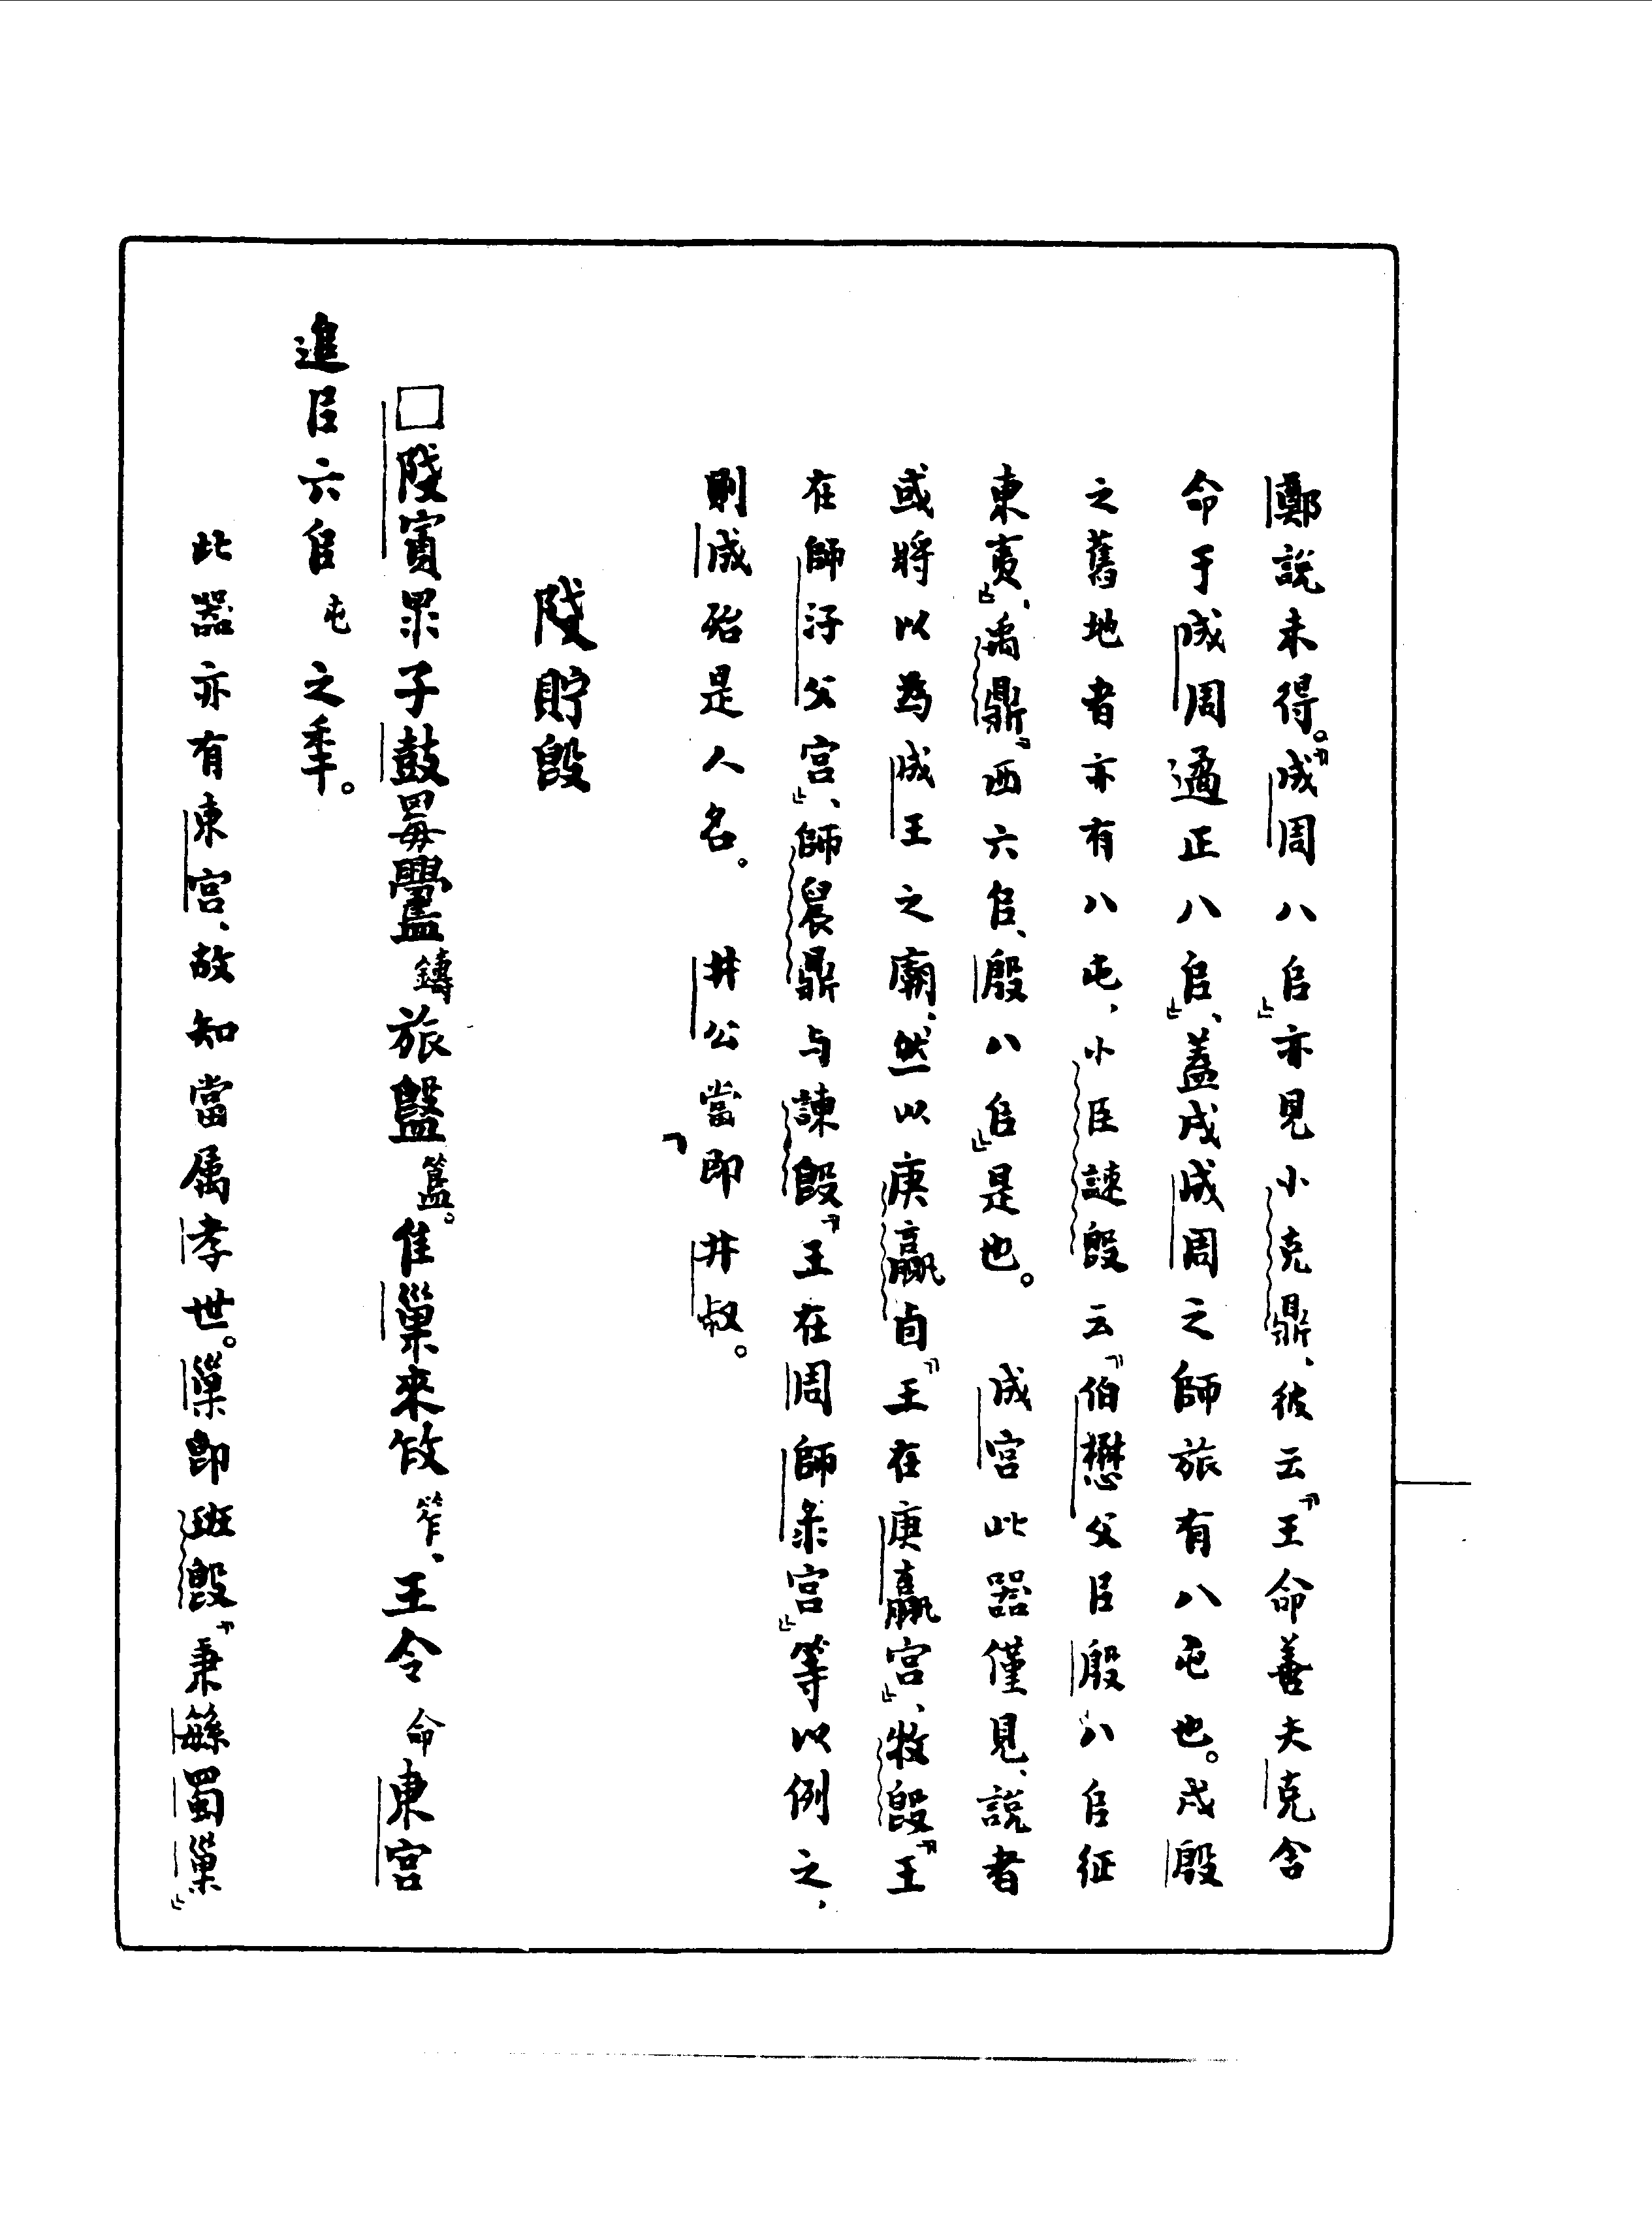 鄭說未得。『成周八𠂤』亦見小克鼎、彼云『王命善夫克舍
命于成周遹正八𠂤』、蓋戍成周之師旅有八屯也。戍殷
之舊地者亦有八屯，小臣謎𣪘云『伯懋父㠯殷八𠂤征
東夷』、禹鼎『西六𠂤、殷八𠂤』是也。　成宮此器僅見、說者
或將以為成王之廟、然以庚嬴卣『王在庚嬴宮』、牧𣪘『王
在師汙父宮』、師晨鼎与諫𣪘『王在周師彔宮』等以例之，
則成殆是人名。　井公當即井叔。
𨺗貯𣪘
□𨺗賓眔子鼓䍙鑄旅𣪘簋。隹巢來㣇笮、王令命東宮
追㠯六𠂤屯之秊。
此器亦有東宮、故知當属孝世。巢即班𣪘『秉緐蜀巢』